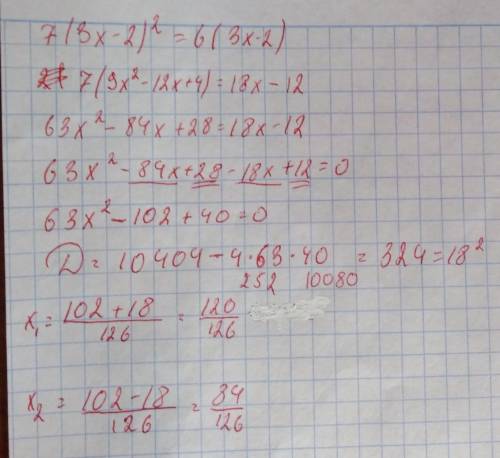 7(3x-2)² = 6(3x-2)
7(9x²-12x+4)=18x-12
63x²-84x+28=18x-12
63x²-84x+28-18x+12=0
63x²-102+40=0
D = 10404-4·63·40 = 324=18²
252 10080
x₁ = (102+18)/126 = 120/126
x₂ = (102-18)/126 = 84/126